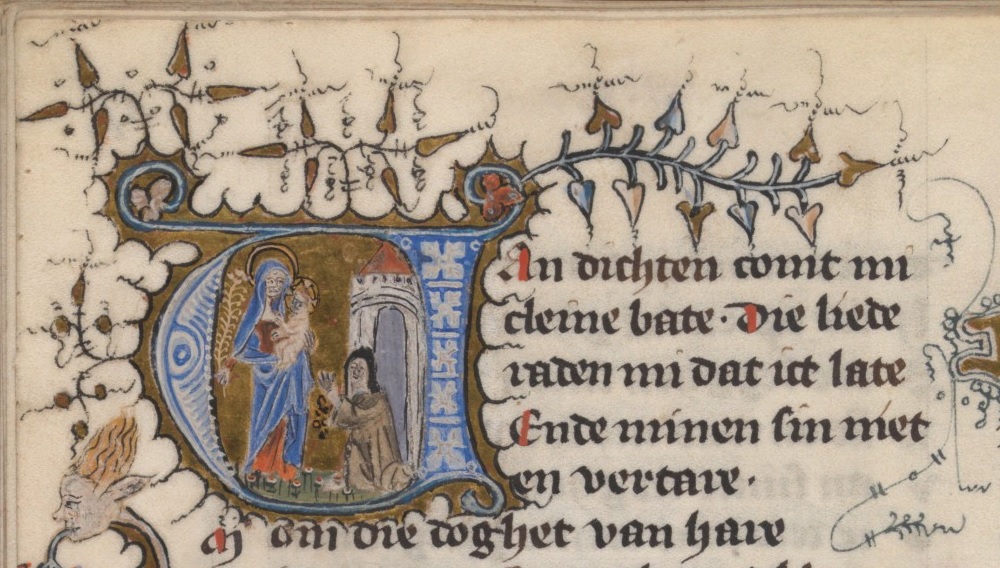 VAn dichten comt mi
cleine bate. Die liede
raden mi dat ict late
Ende minen sin niet
en vertare.
om die doghet van hare